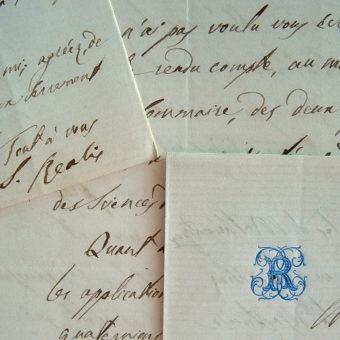 mis, agréez, de
Tout à vous
S. Realis
n'ai pas voulu vous écr
rendu compte, au m
Sommaire, des deux
des Sciences
Quant
les application
quaternions
R